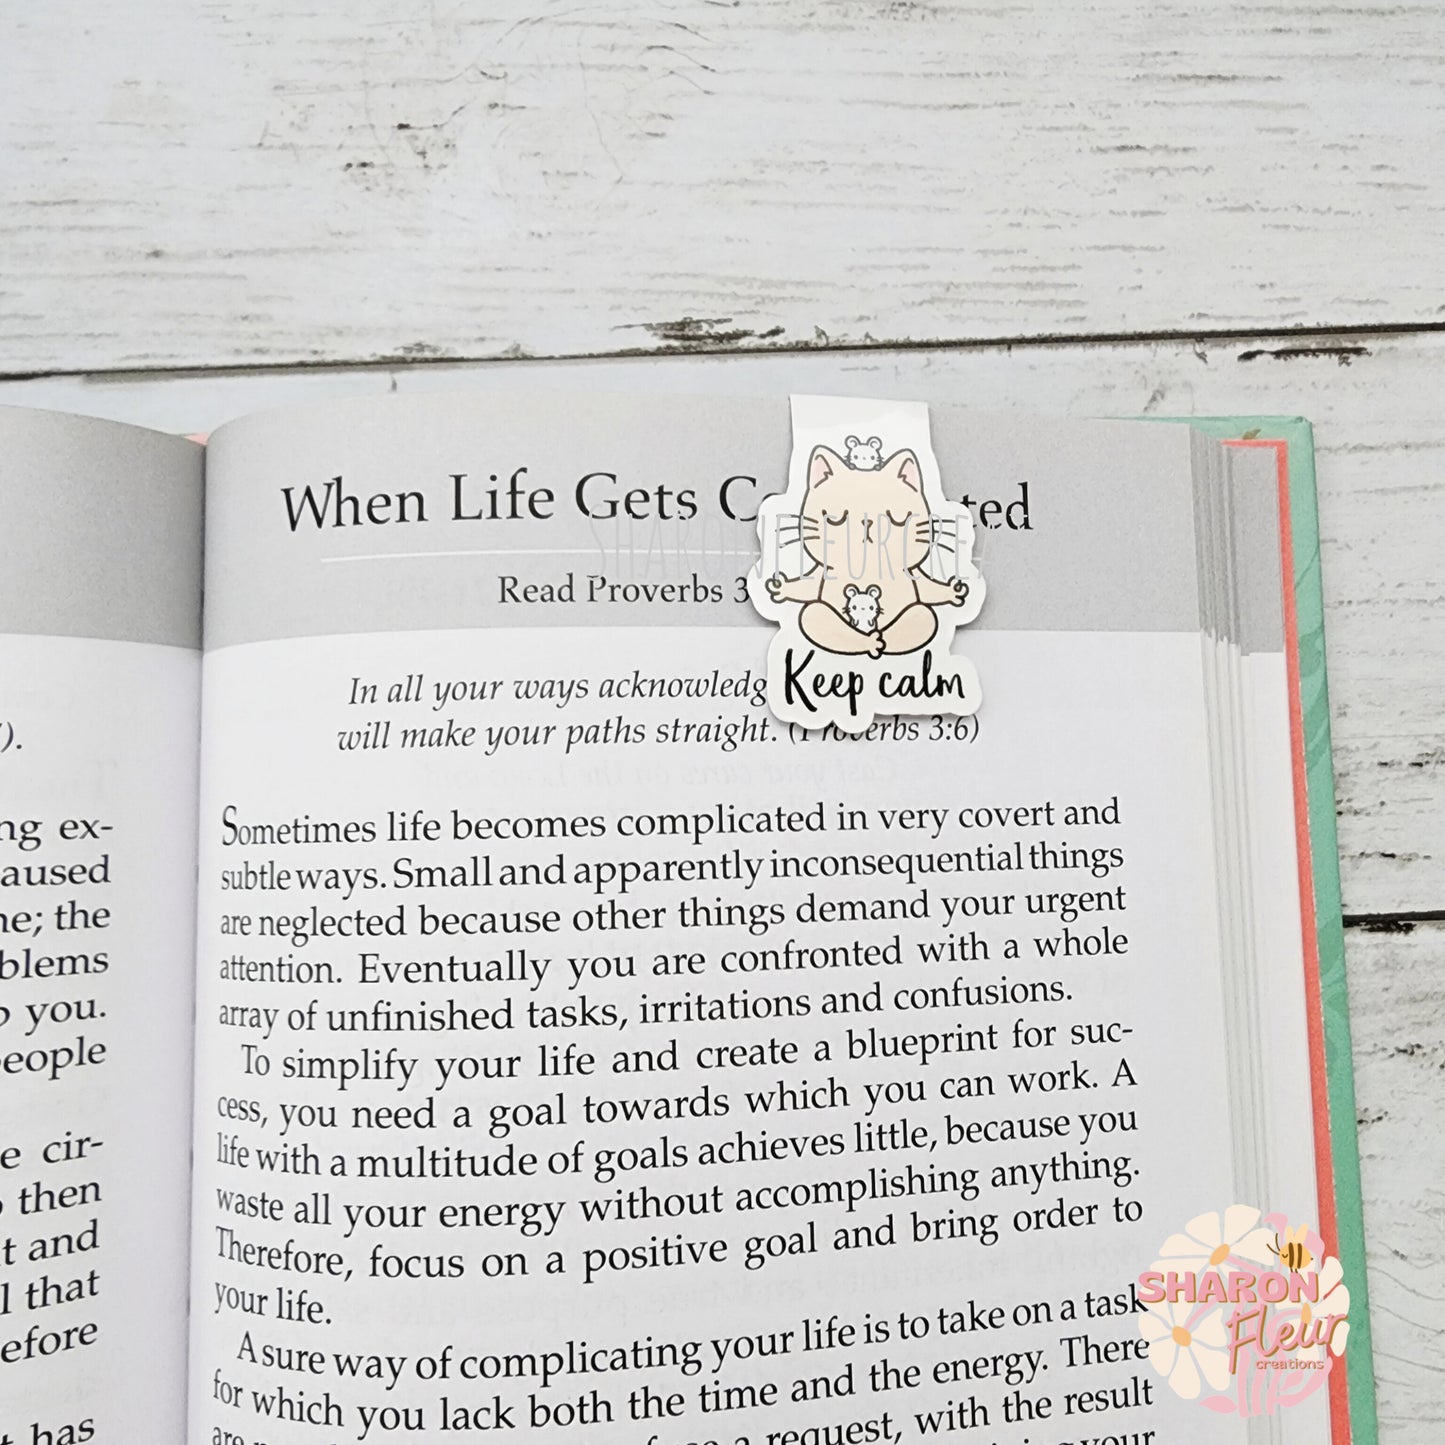 When Life Gets C ted
Read Proverbs 3
In all your ways acknowledg
will make your paths straight. (Proverbs 3:6)
Keep calm
SHARONFLEURCREA
Sometimes life becomes complicated in very covert and
subtle ways. Small and apparently inconsequential things
are neglected because other things demand your urgent
attention. Eventually you are confronted with a whole
array of unfinished tasks, irritations and confusions.
To simplify your life and create a blueprint for suc-
cess, you need a goal towards which you can work. A
life with a multitude of goals achieves little, because you
waste all your energy without accomplishing anything.
Therefore, focus on a positive goal and bring order to
your life.
A sure way of complicating your life is to take on a task
for which you lack both the time and the energy. There
are a request, with the result
your
).
ng ex-
aused
ne; the
blems
o you.
eople
e cir-
then
t and
l that
efore
has
SHARON
Fleur
creations